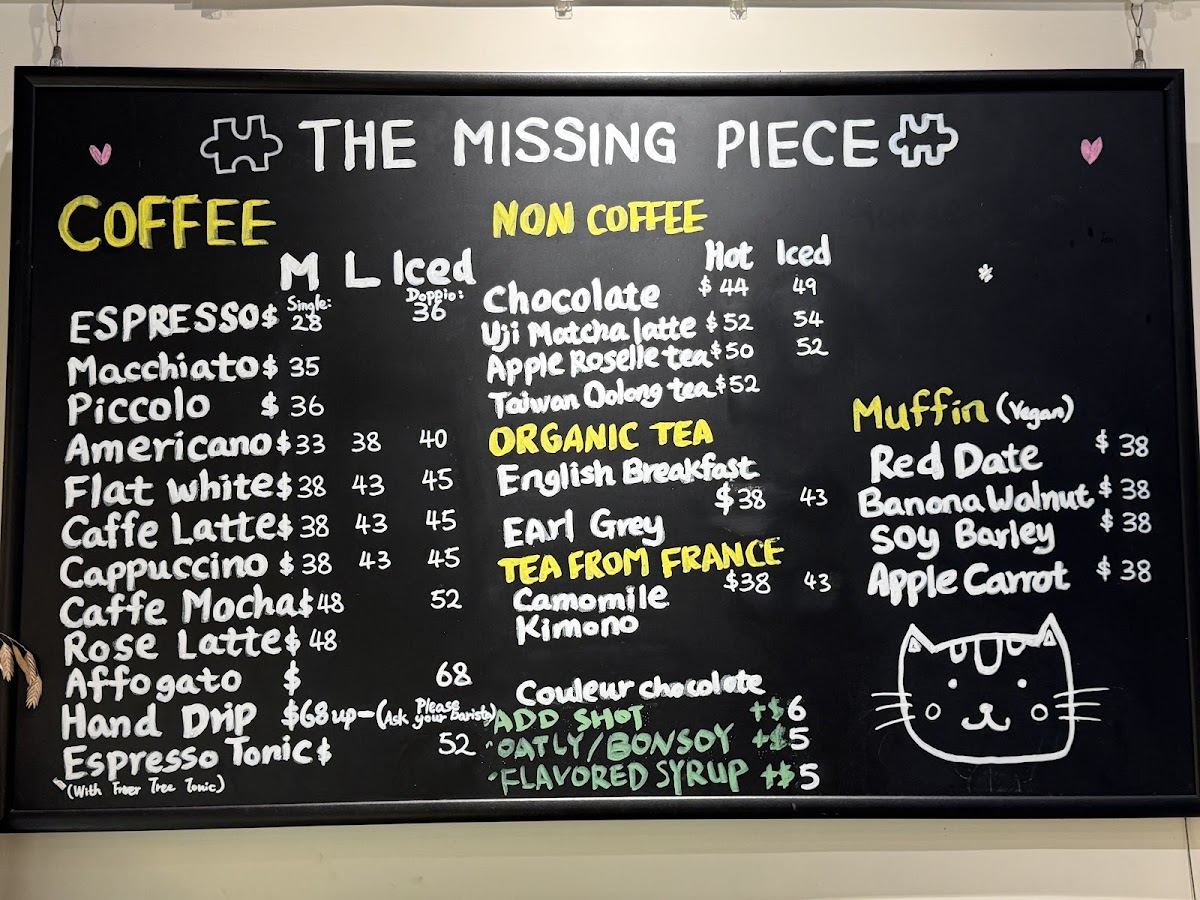 THE MISSING PIECE
COFFEE
M L Iced
Single: Doppio:
ESPRESSO $ 28 36
Macchiato $ 35
Piccolo $ 36
Americano $ 33 38 40
Flat white $ 38 43 45
Caffe Latte $ 38 43 45
Cappuccino $ 38 43 45
Caffe Mocha $ 48 52
Rose Latte $ 48
Affogato $ 68
Hand Drip $ 68 up - (Ask Please your barista)
Espresso Tonic $ 52
(With Tree Tonic)
NON COFFEE
Hot Iced
Chocolate $ 44 49
Uji Matcha latte $ 52 54
Apple Roselle tea $ 50 52
Taiwan Oolong tea $ 52
ORGANIC TEA
English Breakfast
$ 38 43
EArl Grey
TEA FROM FRANCE
$38 43
Camomile
Kimono
Couleur chocolate
ADD SHOT +$ 6
OATLY/BONSOY +$ 5
FLAVORED SYRUP +$ 5
*
Muffin (Vegan)
Red Date $ 38
Banana Walnut $ 38
Soy Barley $ 38
Apple Carrot $ 38